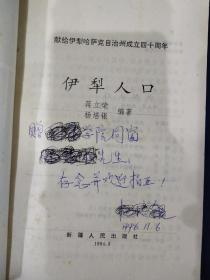 献给伊犁哈萨克自治州成立四十周年
伊犁人口
蒋立荣
杨培银 编著
赠 学院同窗
先生,
存念并欢迎指正!
1996.11.6
新疆人民出版社
1994.8